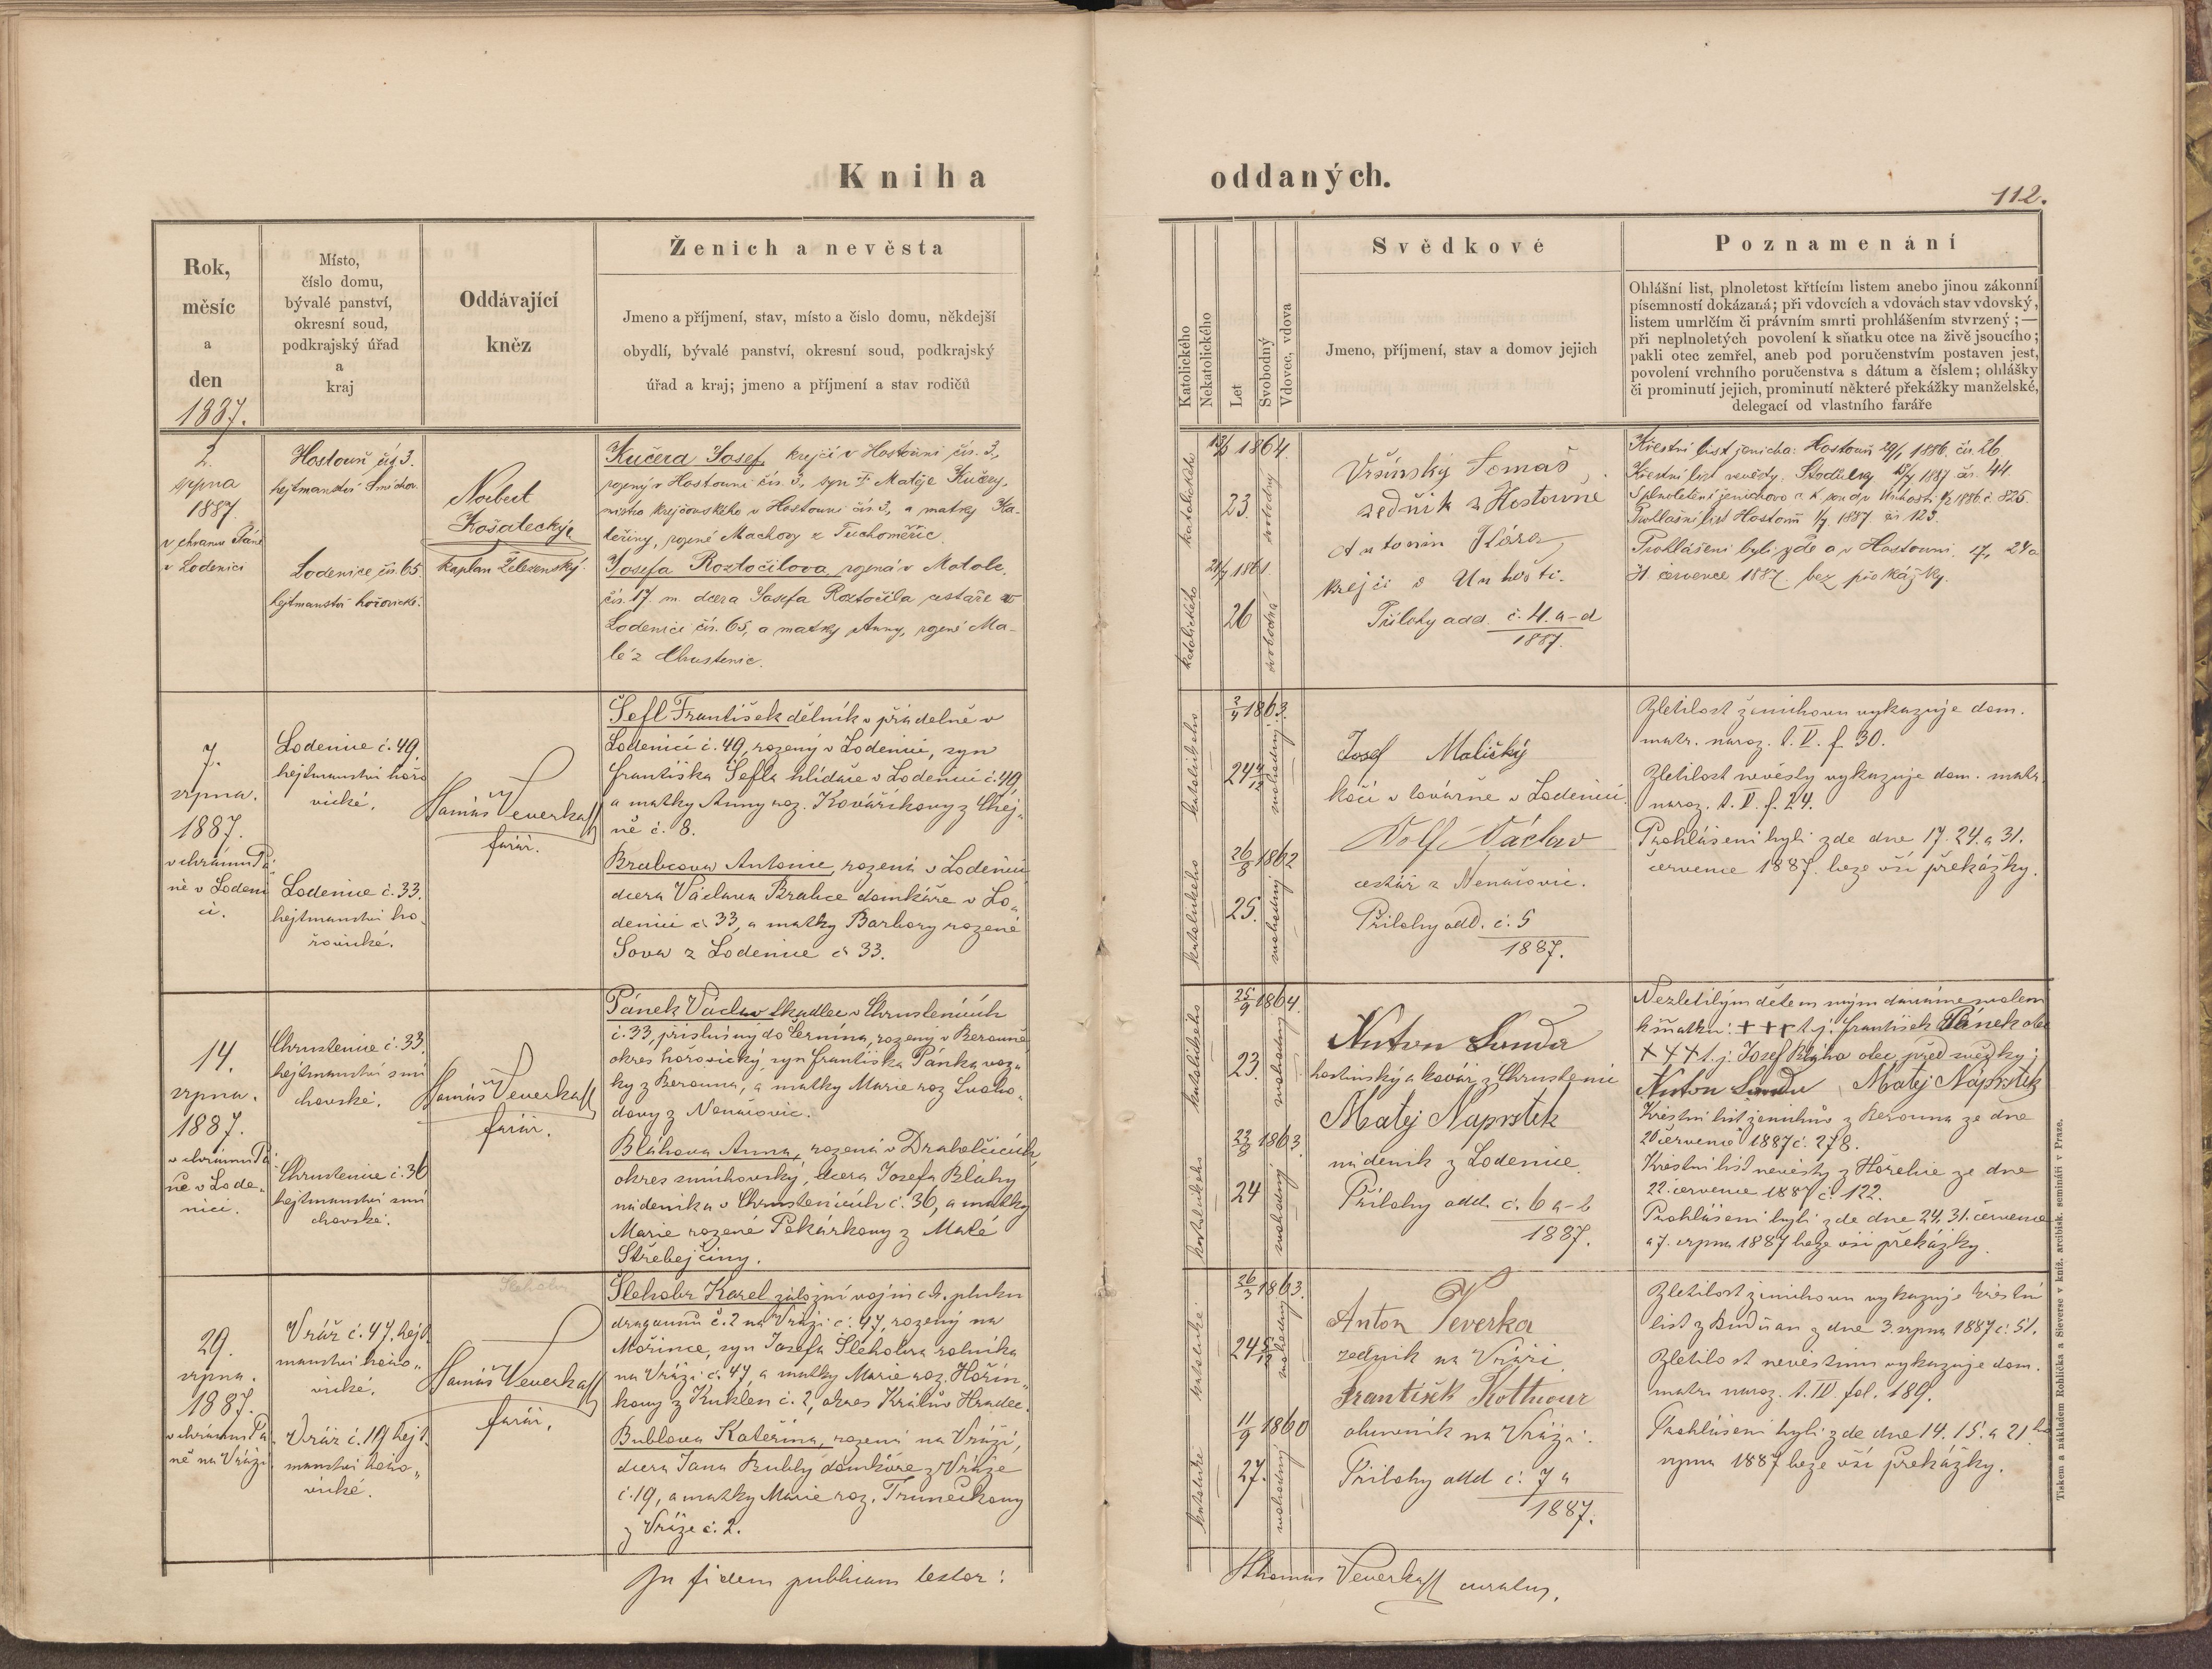 Kniha
oddaných.
112.
Rok,
měsíc
a
den
1887.
Místo,
číslo domu,
bývalé panství,
okresní soud,
podkrajský úřad
a
kraj
Oddávající
kněz
Ženich a nevěsta
Jmeno a příjmení, stav, místo a číslo domu, někdejší
obydlí, bývalé panství, okresní soud, podkrajský
úřad a kraj; jmeno a příjmení a stav rodičů
Katolického
Nekatolického
Let
Svobodný
Vdovec, vdova
Svědkové
Jmeno, příjmení, stav a domov jejich
Poznamenání
Ohlášní list, plnoletost křtícím listem anebo jinou zákonní
písemností dokázaná; při vdovcích a vdovách stav vdovský,
listem umrlčím či právním smrti prohlášením stvrzený; —
při neplnoletých povolení k sňatku otce na živě jsoucího;
pakli otec zemřel, aneb pod poručenstvím postaven jest,
povolení vrchního poručenstva s dátum a číslem; ohlášky
či prominutí jejich, prominutí některé překážky manželské,
delegací od vlastního faráře
2.
srpna
1887.
v chrámu Páně
v Lodenici
Hostouň čís 3.
hejtmanství Smíchov
Lodenice čís. 65.
hejtmanství hořovické.
Norbert
Košatecký
kaplan Železenský.
Kučera Josef, krejčí v Hostouni čís. 3,
rozený v Hostouni čís. 3, syn † Matěje Kučery,
mistra krejčovského v Hostouni čís 3, a matky Ka-
teřiny, rozené Machovy z Tuchoměřic.
Josefa Roztočilova rozená v Motole
čís. 17. m. dcera Josefa Roztočila cestáře v
Lodenici čís. 65, a matky Anny, rozené Ma-
lé z Chrustenic.
katolického
1864.
23.
svobodný
katolického
1861.
26
svobodná
Vršínský Tomaš,
zedník z Hostouně
Antonin Kára,
krejčí v Unhošti.
Přílohy add. č. 4. a-d
1887.
Křestní list ženicha: Hostouň 29/1 1886. čís. 26.
Křestní list nevěsty: Stodůlky 1887 čís. 44.
Prohlášní list Hostouň 1887. čís 123.
Prohlášení byli zde a v Hostouni. 17, 24 a
31. července 1887. bez překážky.
7.
srpna.
1887.
v chrámu Pá-
ně v Lodeni
ci.
Lodenice č. 49,
hejtmanství hořo
vické.
Lodenice č. 33.
hejtmanství ho-
řovické.
Tomáš Veverka
farář.
Šefl František dělník v přádelně v
Lodenici č. 49, rozený v Lodenici, syn
Františka Šefla hlídače v Lodenici č. 49,
a matky Anny roz. Kovaříkovy z Chej-
ně č. 8.
Brabcova Antonie, rozená v Lodenici
dcera Václava Brabce domkáře v Lo-
denici č 33, a matky Barbory rozené
Sova z Lodenice č 33.
katolického
3/4 1863.
24 4/12
svobodný
katolického
26/8 1862
25.
svobodný
Josef Mališký
kočí v továrně v Lodenici.
Wolf Václav
cestář z Nenačovic.
Přílohy add. č. 5
1887.
Zletilost ženichovu vykazuje dom.
matr. naroz. t. V. f. 30.
Zletilost nevěsty vykazuje dom. matr.
naroz. t. V. f. 24.
Prohlášení byli zde dne 17. 24. a 31.
července 1887. beze vší překážky.
14.
srpna.
1887.
v chrámu Pá
ně v Lode-
nici.
Chrustenice č. 33.
hejtmanství smí
chovské.
Chrustenice č. 36
hejtmanství smí
chovské.
Tomáš Veverka
farář.
Pánek Václav tkadlec v Chrustenicích
č. 33, příslušný do Černína, rozený v Berouně
okres hořovický, syn Františka Pánka voza-
ky z Berouna, a matky Marie roz Svobo-
dovy z Nenačovic.
Bláhova Anna, rozená v Draheličicích,
okres smíchovský, dcera Josefa Bláhy
nádeníka v Chrustenicích č. 36, a matky
Marie rozené Pekárkovy z Malé
Střebejčiny.
katolického
25/9 1864.
23.
svobodný
katolického
22/8 1863.
24
svobodný
Anton Sonda
hostinský a kovář z Chrustenic
Matej Náprstek
nádeník z Lodenice.
Přílohy add. č. 6 a-b
1887.
Nezletilým dětem svým dáváme svolení
k sňatku: + + + t. j. František Pánek otec
+ + + t. j. Josef Bláha otec, před svědky:
Anton Sonda Matej Náprstek
Křestní list ženichův z Berouna ze dne
20 července 1887 č. 278.
Křestní list nevěsty z Hořelic ze dne
22. července 1887 č. 122.
Prohlášení byli zde dne 24, 31. července
a 7. srpna 1887 beze vší překážky.
29.
srpna.
1887.
v chrámu Pá
ně na Vráži
Vráž č. 47. hejt
manství hořo-
vické.
Vráž č. 19 hejt-
manství hořo-
vické.
Tomáš Veverka
farář.
Šlehobr
Šlehobr Karel záložní vojín c. k. pluku
dragounů č. 2 na Vráži č. 47, rozený na
Mořince, syn Josefa Šlehobra rolníka
na Vráži č. 47, a matky Marie roz. Hořín-
kovy z Kuklen č. 2, okres Králův Hradec.
Bublova Kateřina, rozená na Vráži,
dcera Jana Bubly domkáře z Vráže
č. 19, a matky Marie roz. Trunečkovy
z Vráže č. 2.
katolické
26/3 1863.
24 5/12
svobodný
katolické
11/9 1860
27.
svobodný
Anton Veverka
zedník na Vráži
František Kottnour
obuvník na Vráži.
Přílohy add č. 7 a
1887.
Zletilost ženichovu vykazuje křestní
list z Budňan z dne 3. srpna 1887 č. 51.
Zletilost nevěstinu vykazuje dom.
matr. naroz. t. IV fol. 189.
Prohlášení byli zde dne 14. 15. a 21ho
srpna 1887 beze vší překážky.
In fidem publicam testor:
Thomas Veverka curatus.
Tiskem a nákladem Rohlíčka a Sieverse v kníž. arcibisk. semináři v Praze.